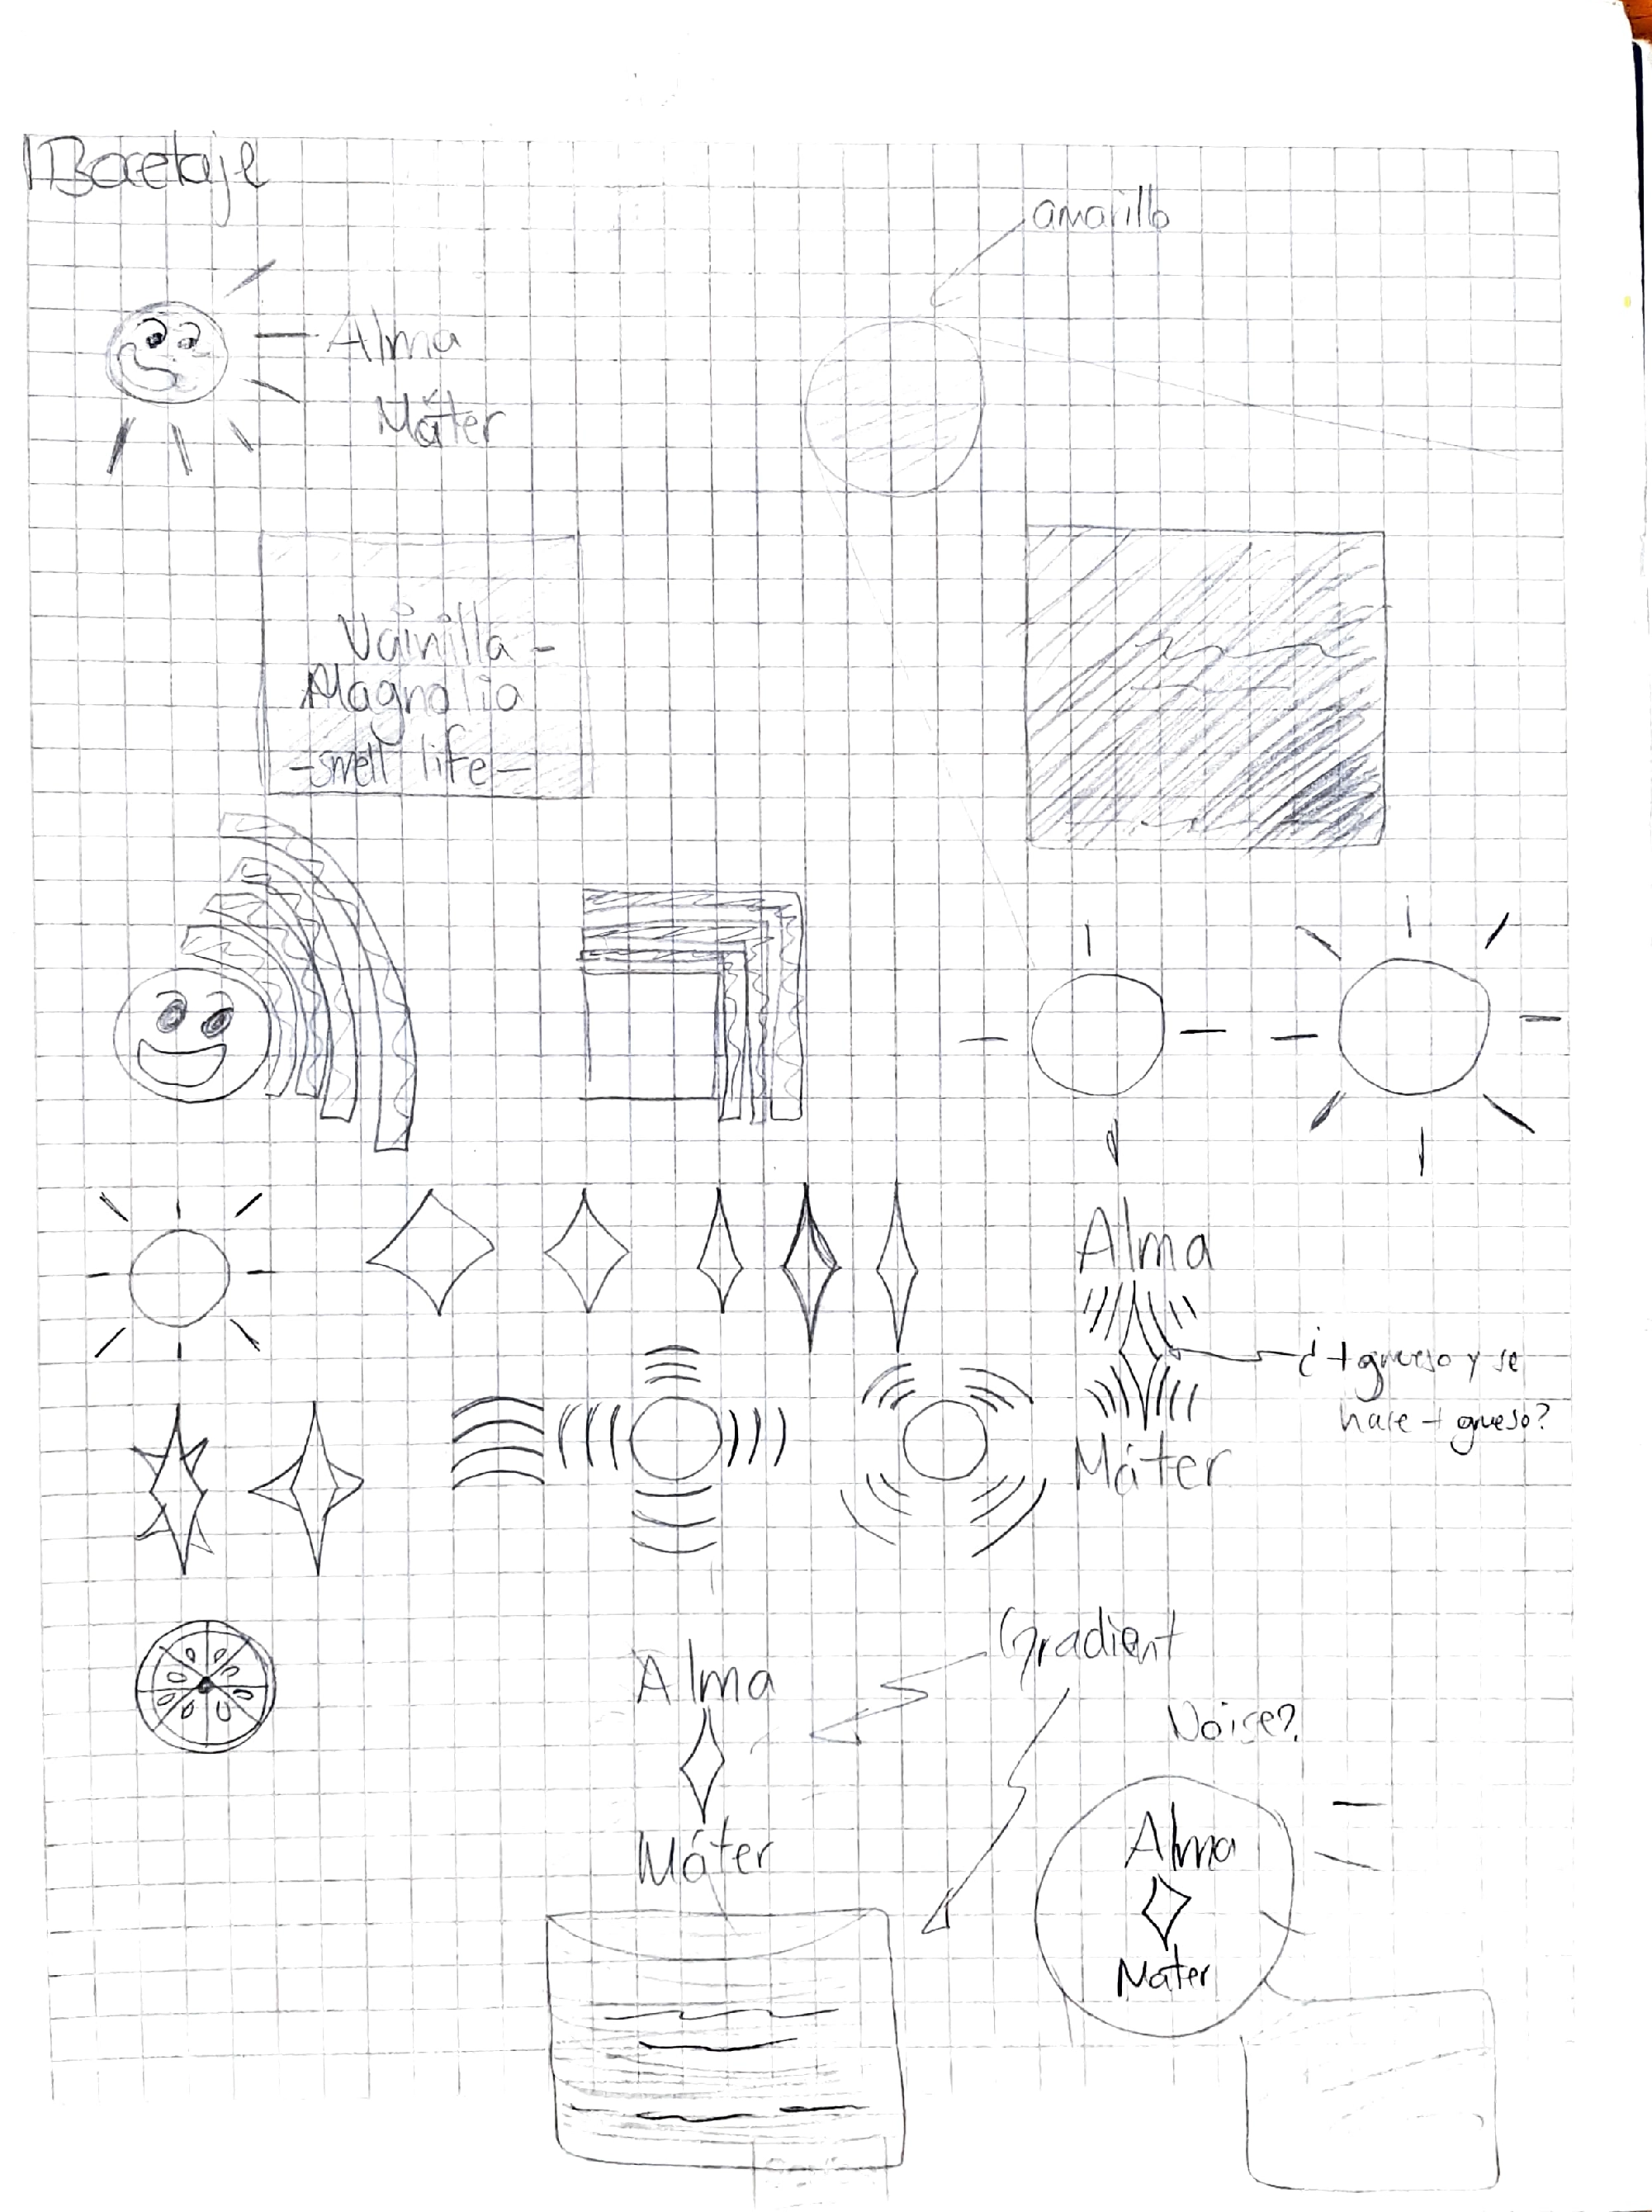 Bocetaje
amarillo
Alma
Máter
Vainilla -
Magnolia
-smell life-
Alma
¿+grueso y se
hace + grueso?
Máter
Gradient
Alma
Noise?
Máter
Alma
Mater